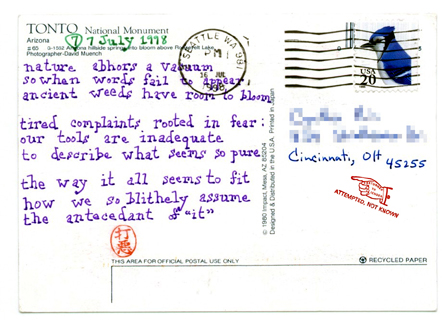 TONTO National Monument
Arizona
⑦ 7 July 1998
p65 D-1552 Arizona hillside springs into bloom above Roosevelt Lake.
Photographer-David Muench
nature abhors a vacuum
so when words fail to appear,
ancient weeds have room to bloom
tired complaints rooted in fear:
our tools are inadequate
to describe what seems so pure
the way it all seems to fit
how we so blithely assume
the antecedant of "it"
打悪
SEATTLE WA 981
PM
16 JUL
1998
USA
20
Cincinnati, OH 45255
ATTEMPTED, NOT KNOWN
© 1980 Impact, Mesa, AZ 85204
Designed & Distributed in the U.S.A. Printed in Japan
THIS AREA FOR OFFICIAL POSTAL USE ONLY
RECYCLED PAPER